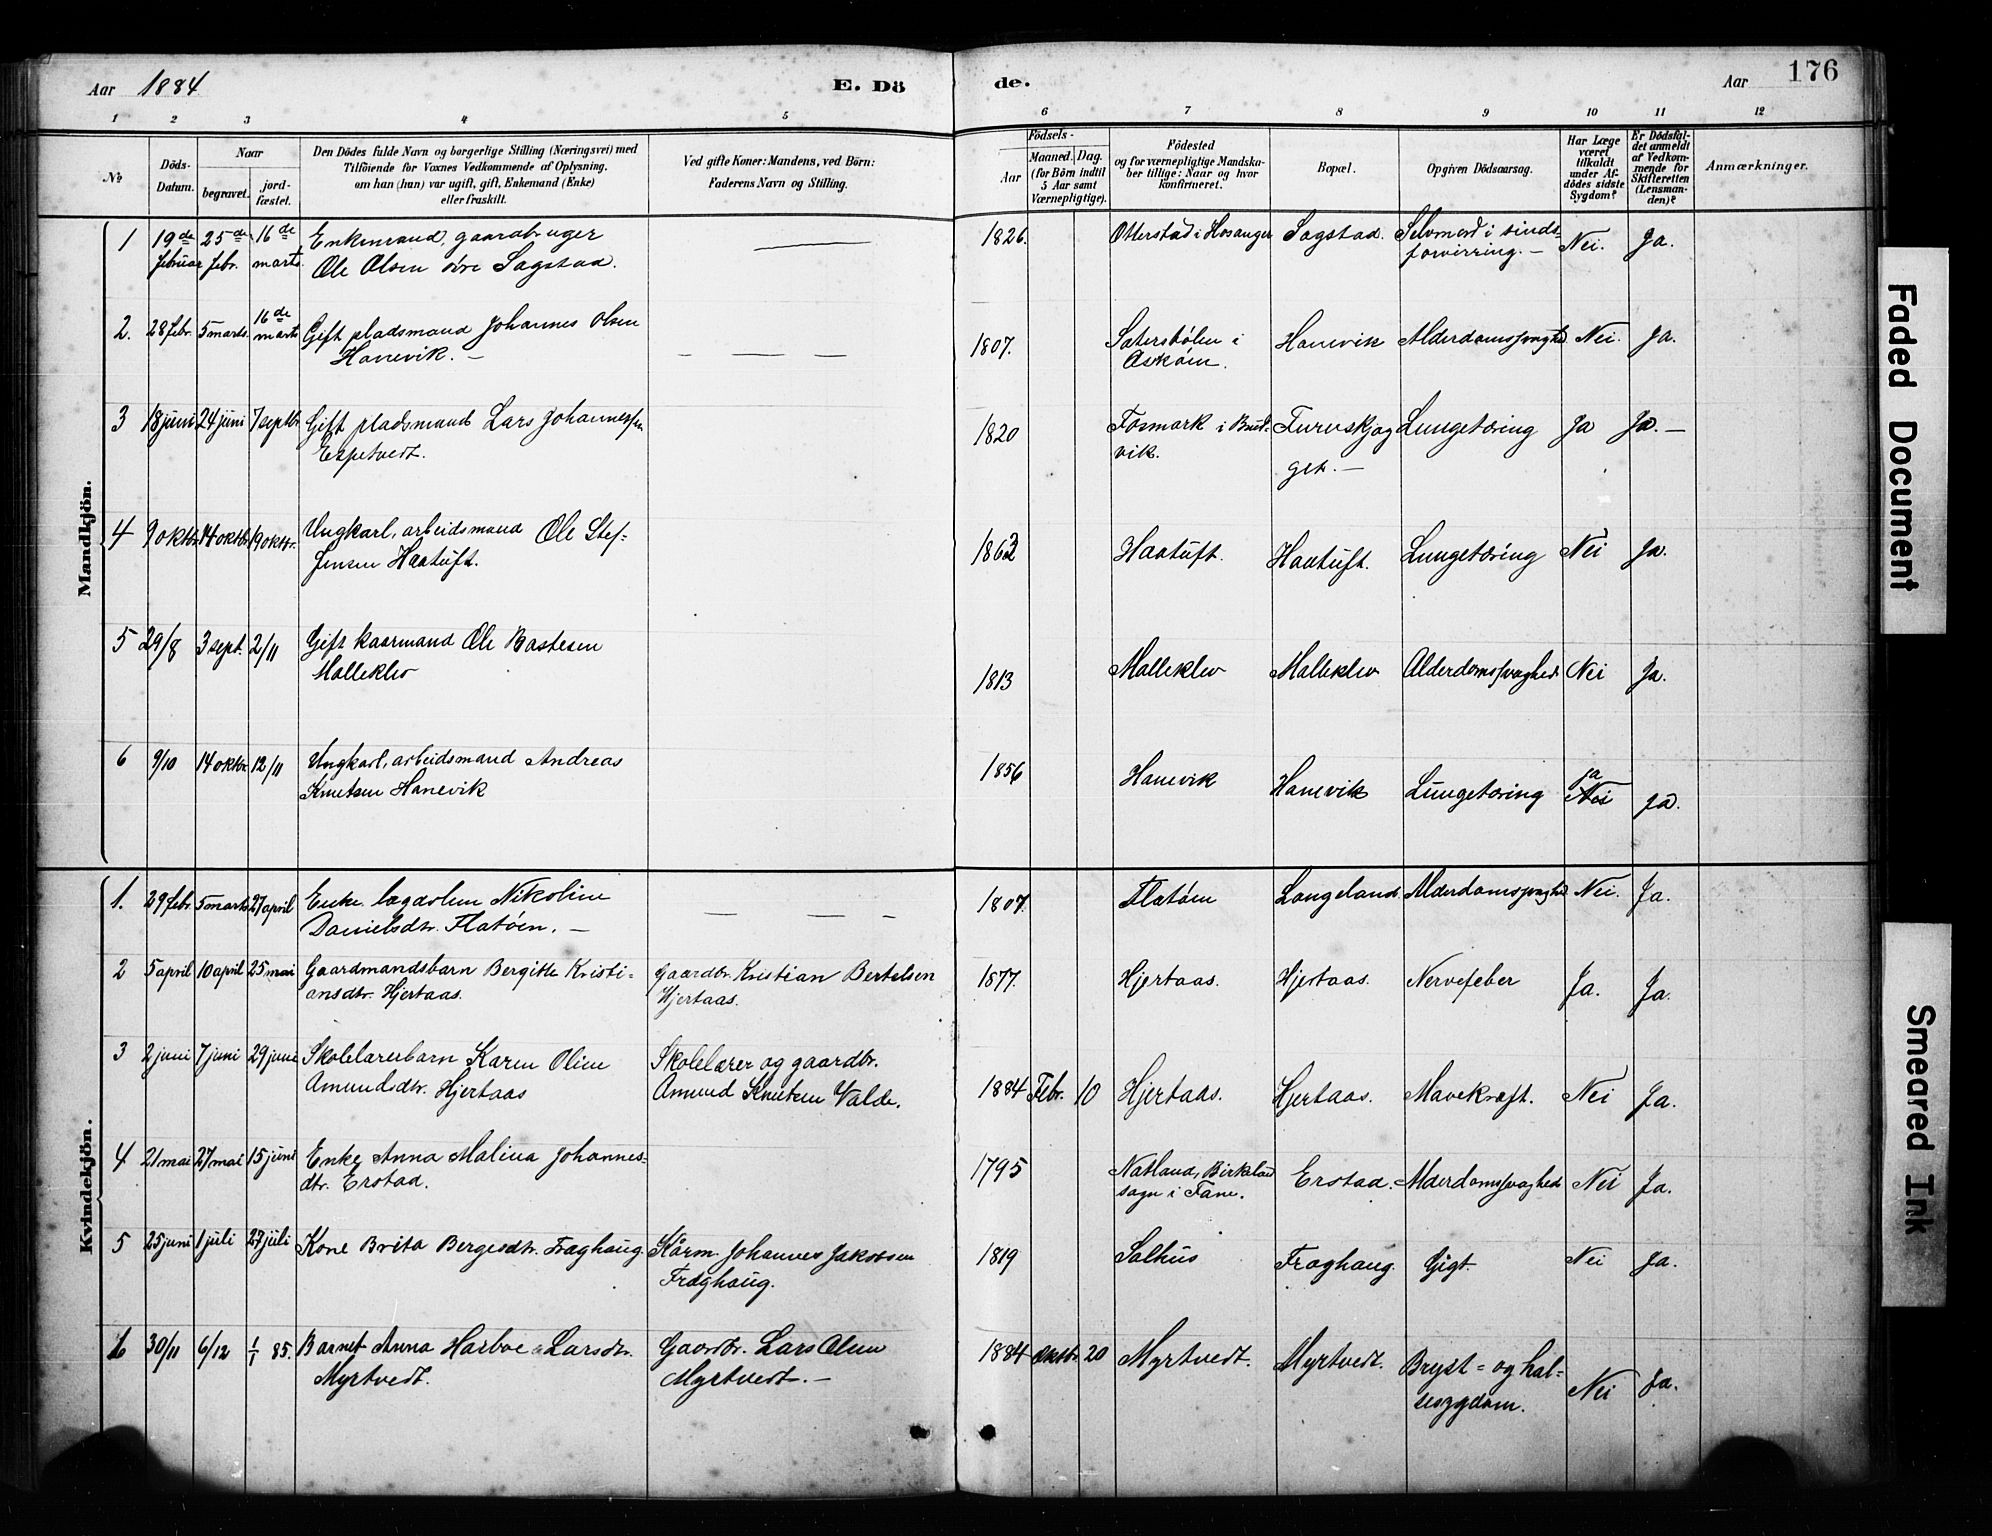 Aar 1884
E. Dö
de.
Aar
176
1 2 3 4 5 6 7 8 9 10 11 12
№
Döds-
Datum.
Naar
begravet.
jord-
fæstet.
Den Dödes fulde Navn og borgerlige Stilling (Næringsvei) med
Tilföiende for Voxnes Vedkommende af Oplysning,
om han (hun) var ugift, gift, Enkemand (Enke)
eller fraskilt.
Ved gifte Koner: Mandens, ved Börn:
Faderens Navn og Stilling.
Födsels-
Aar
Maaned. Dag.
(for Börn indtil
5 Aar samt
Værnepligtige).
Födested
og for værnepligtige Mandska-
ber tillige: Naar og hvor
konfirmeret.
Bopæl.
Opgiven Dödsaarsag.
Har Læge
været
tilkaldt
under Af-
dödes sidste
Sygdom?
Er Dödsfal-
det anmeldt
af Vedkom-
mende for
Skifteretten
(Lensman-
den)?
Anmærkninger.
Mandkjön.
1 19de 25de 16de Enkemand, gaardbruger 1826. Otterstad i Hosanger Sagstad. Selvmord i sinds- Nei. Ja.
februar febr. marts. Ole Olsen øvre Sagstad. forvirring. —
2. 28 febr. 5 marts. 16de marts Gift pladsmand Johannes Olsen 1807. Sætersbølen i Hanevik Alderdomssvaghed Nei. Ja.
Hanevik. — Askøen.
3 18 juni 24 juni 7 septbr. Gift pladsmand Lars Johannessen 1820 Fosmark i Bruk- Furuskjæg Lungetæring Ja Ja. —
Espetvedt. vik. get. —
4 9 oktbr. 14 oktbr. 19 oktbr. Ungkarl, arbeidsmand Ole Stef- 1862 Haatuft. Haatuft. Lungetæring Nei Ja.
fensen Haatuft.
5 29/8 3 sept. 2/11 Gift kaarmand Ole Bastesen 1813 Molleklev Molleklev Alderdomssvaghed Nei Ja.
Molleklev
6 9/10 14 oktbr. 12/11 Ungkarl, arbeidsmand Andreas 1856 Hanevik Hanevik Lungetæring ja Nei ja.
Knutsen Hanevik
Kvindekjön.
1. 29 febr. 5 marts 27 april Enke lægdslem Nikoline 1807. Flatøen Langeland Alderdomssvaghed Nei. Ja.
Danielsdtr. Flatøen. —
2 5 april 10 april 25 mai Gaardmandsbarn Bergitte Kristi- Gaardbr. Kristian Bertelsen 1877. Hjertaas. Hjertaas. Nervefeber Ja. Ja.
ansdtr. Hjertaas. Hjertaas.
3 2 juni 7 juni 29 juni Skolelærerbarn Karen Oline Skolelærer og gaardbr. 1884 Febr. 10 Hjertaas. Hjertaas. Mavekræft. Nei Ja.
Amundsdtr. Hjertaas Amund Knutsen Valde.
4 21 mai 27 mai 15 juni Enke Anna Malina Johannes- 1795 Natland, Birkeland Erstad. Alderdomssvaghed Nei Ja.
dtr. Erstad. sogn i Fane.
5 25 juni 1 juli 27 juli Kone Brita Bergesdtr. Fræghaug. Kårm. Johannes Jakobsen 1819 Salhus Fræghaug. Gigt. Nei Ja.
Fræghaug.
6 30/11 6/12 1/1 85. Barnet Anna Harboe Larsdtr. Gaardbr. Lars Olsen 1884 Oktbr. 20 Myrtvedt. Myrtvedt. Bryst- og hal- Nei Ja.
Myrtvedt. Myrtvedt. — sesygdom.
Faded Document
Smeared Ink